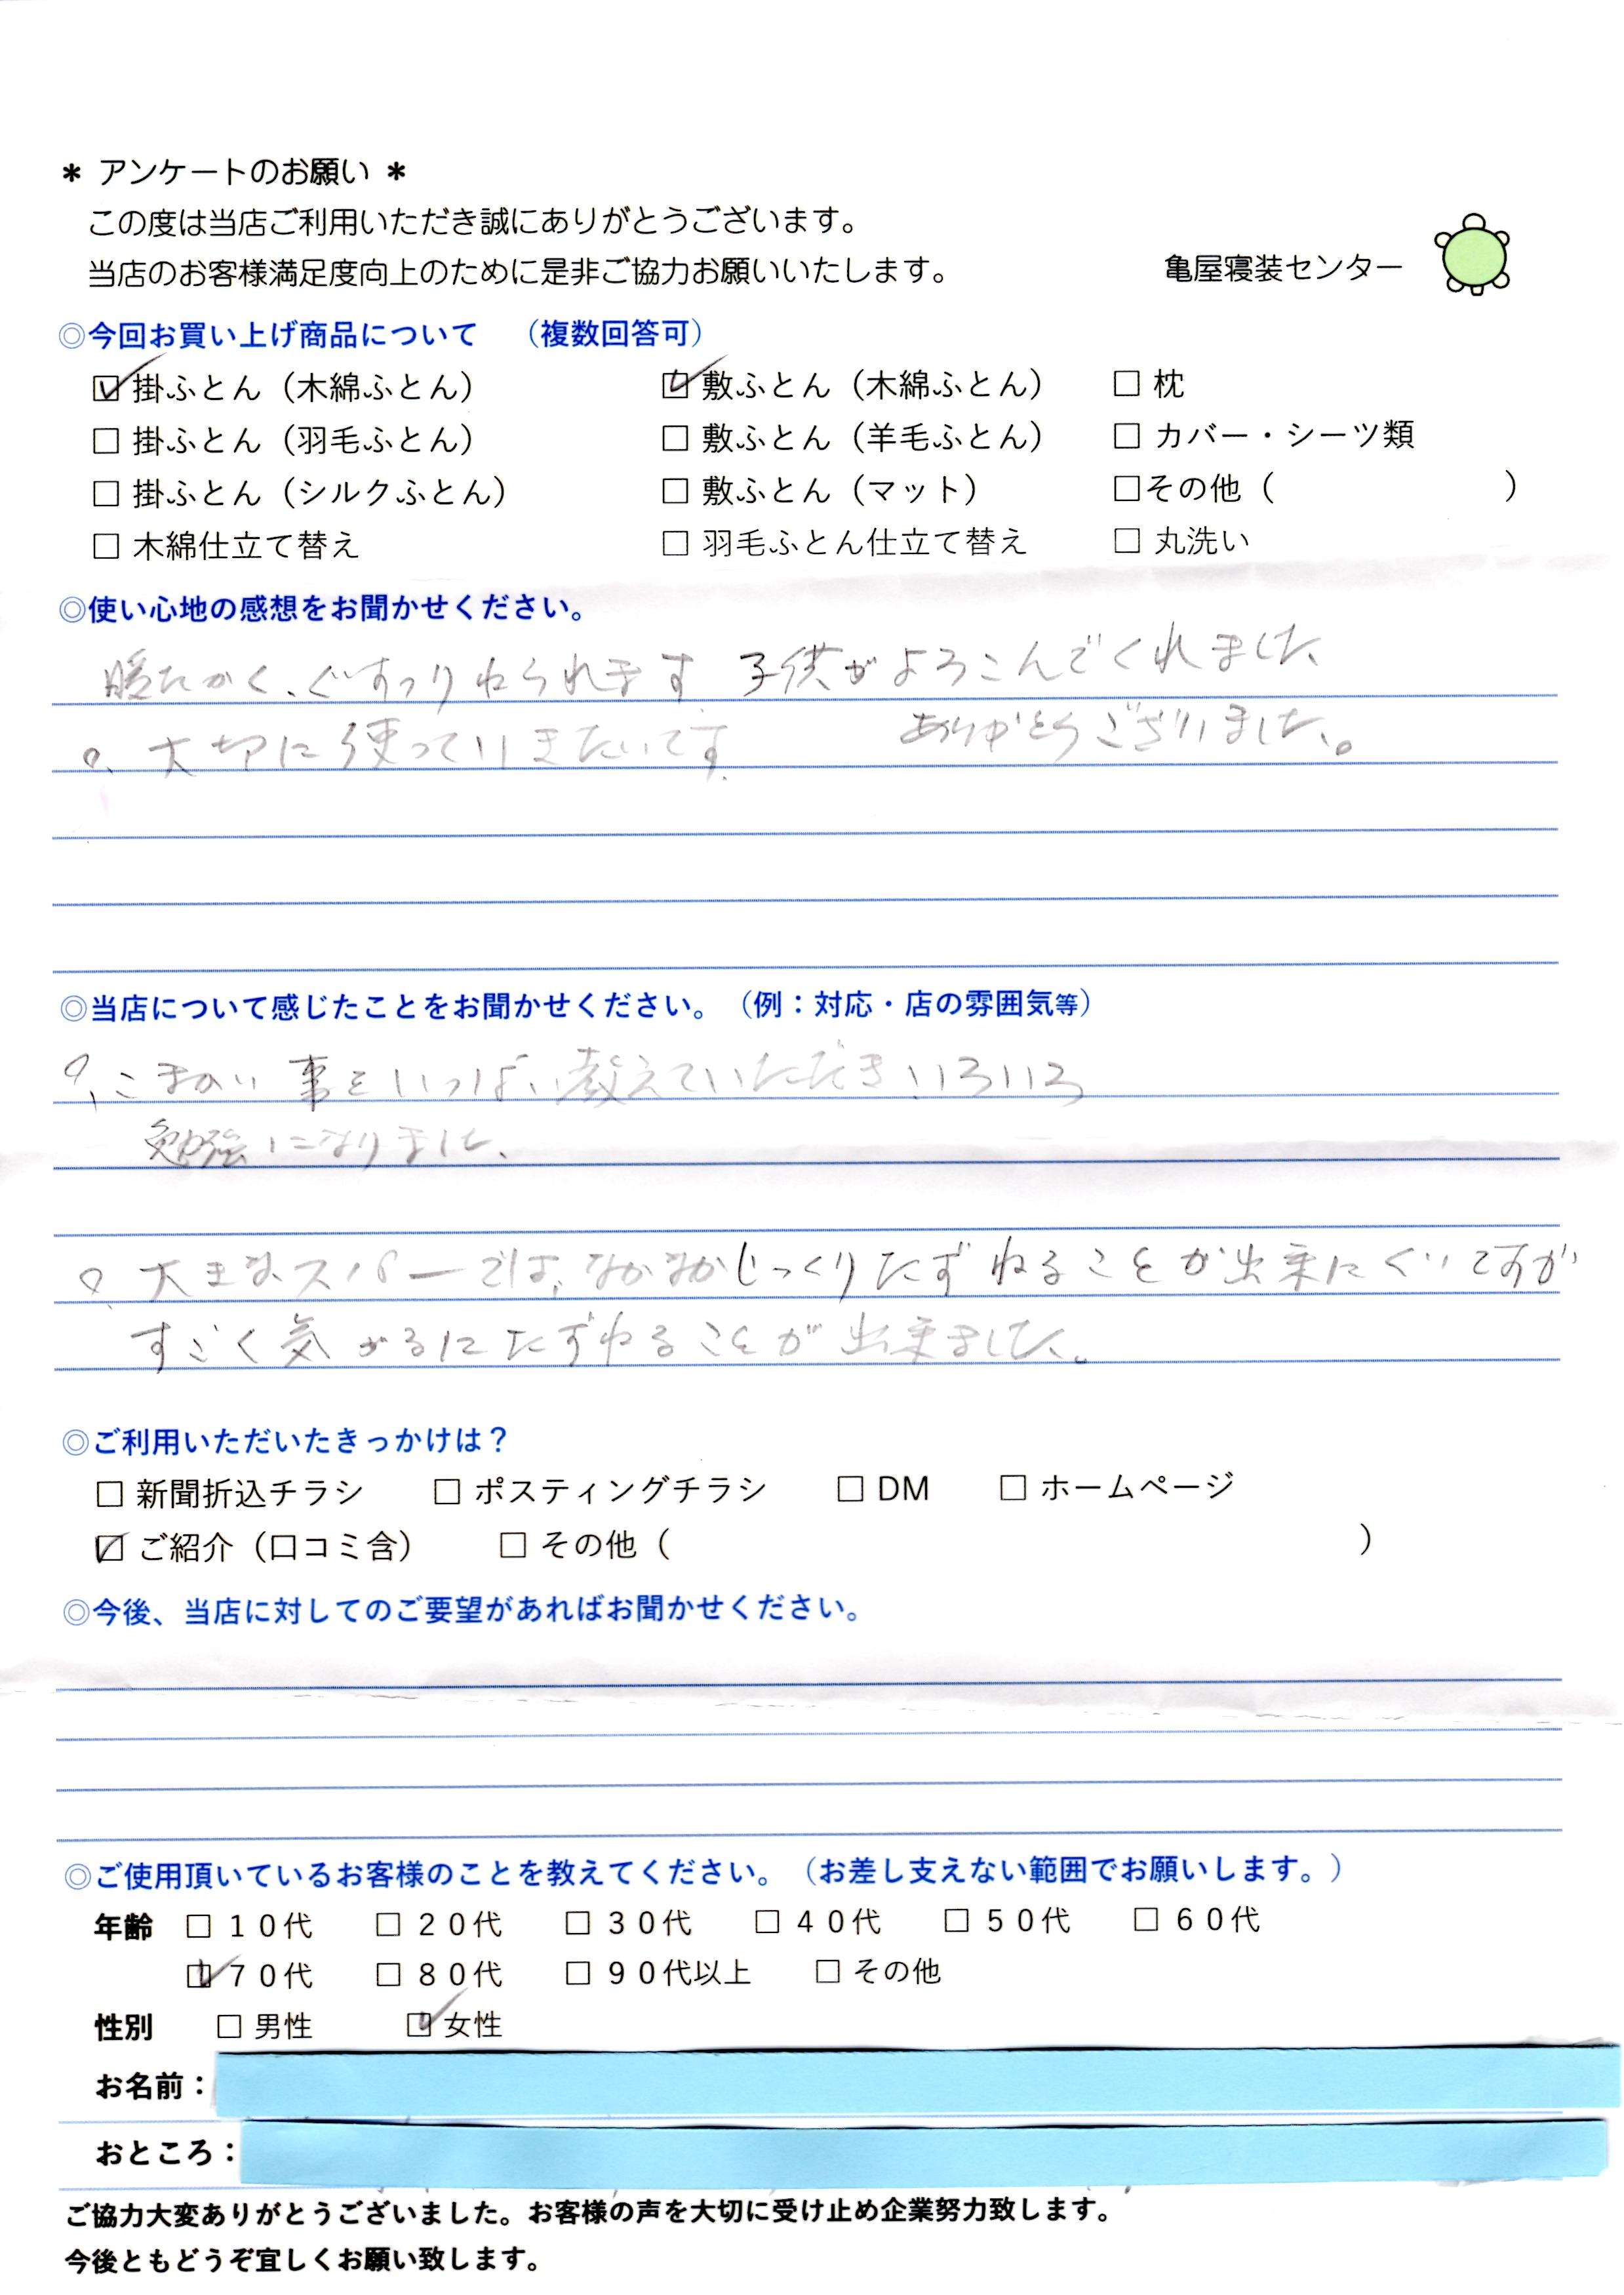 ＊ アンケートのお願い ＊
この度は当店ご利用いただき誠にありがとうございます。
当店のお客様満足度向上のために是非ご協力お願いいたします。 亀屋寝装センター
◎今回お買い上げ商品について （複数回答可）
☑ 掛ふとん（木綿ふとん） ☑ 敷ふとん（木綿ふとん） □ 枕
□ 掛ふとん（羽毛ふとん） □ 敷ふとん（羊毛ふとん） □ カバー・シーツ類
□ 掛ふとん（シルクふとん） □ 敷ふとん（マット） □その他（ ）
□ 木綿仕立て替え □ 羽毛ふとん仕立て替え □ 丸洗い
◎使い心地の感想をお聞かせください。
暖たかく、ぐすっりねられます 子供がよろこんでくれました
○、大切に使っていきたいです。 ありがとうございました。
◎当店について感じたことをお聞かせください。（例：対応・店の雰囲気等）
○、こまかい事をいっぱい教えていただきいろいろ
勉強になりました、
○、大きなスパーでは、なかなかじっくりたずねることが出来にくいですが
すごく気がるにたずねることが出来ました。
◎ご利用いただいたきっかけは？
□ 新聞折込チラシ □ ポスティングチラシ □ DM □ ホームページ
☑ ご紹介（口コミ含） □ その他（ ）
◎今後、当店に対してのご要望があればお聞かせください。
◎ご使用頂いているお客様のことを教えてください。（お差し支えない範囲でお願いします。）
年齢 □ １０代 □ ２０代 □ ３０代 □ ４０代 □ ５０代 □ ６０代
☑ ７０代 □ ８０代 □ ９０代以上 □ その他
性別 □ 男性 ☑ 女性
お名前：
おところ：
ご協力大変ありがとうございました。お客様の声を大切に受け止め企業努力致します。
今後ともどうぞ宜しくお願い致します。